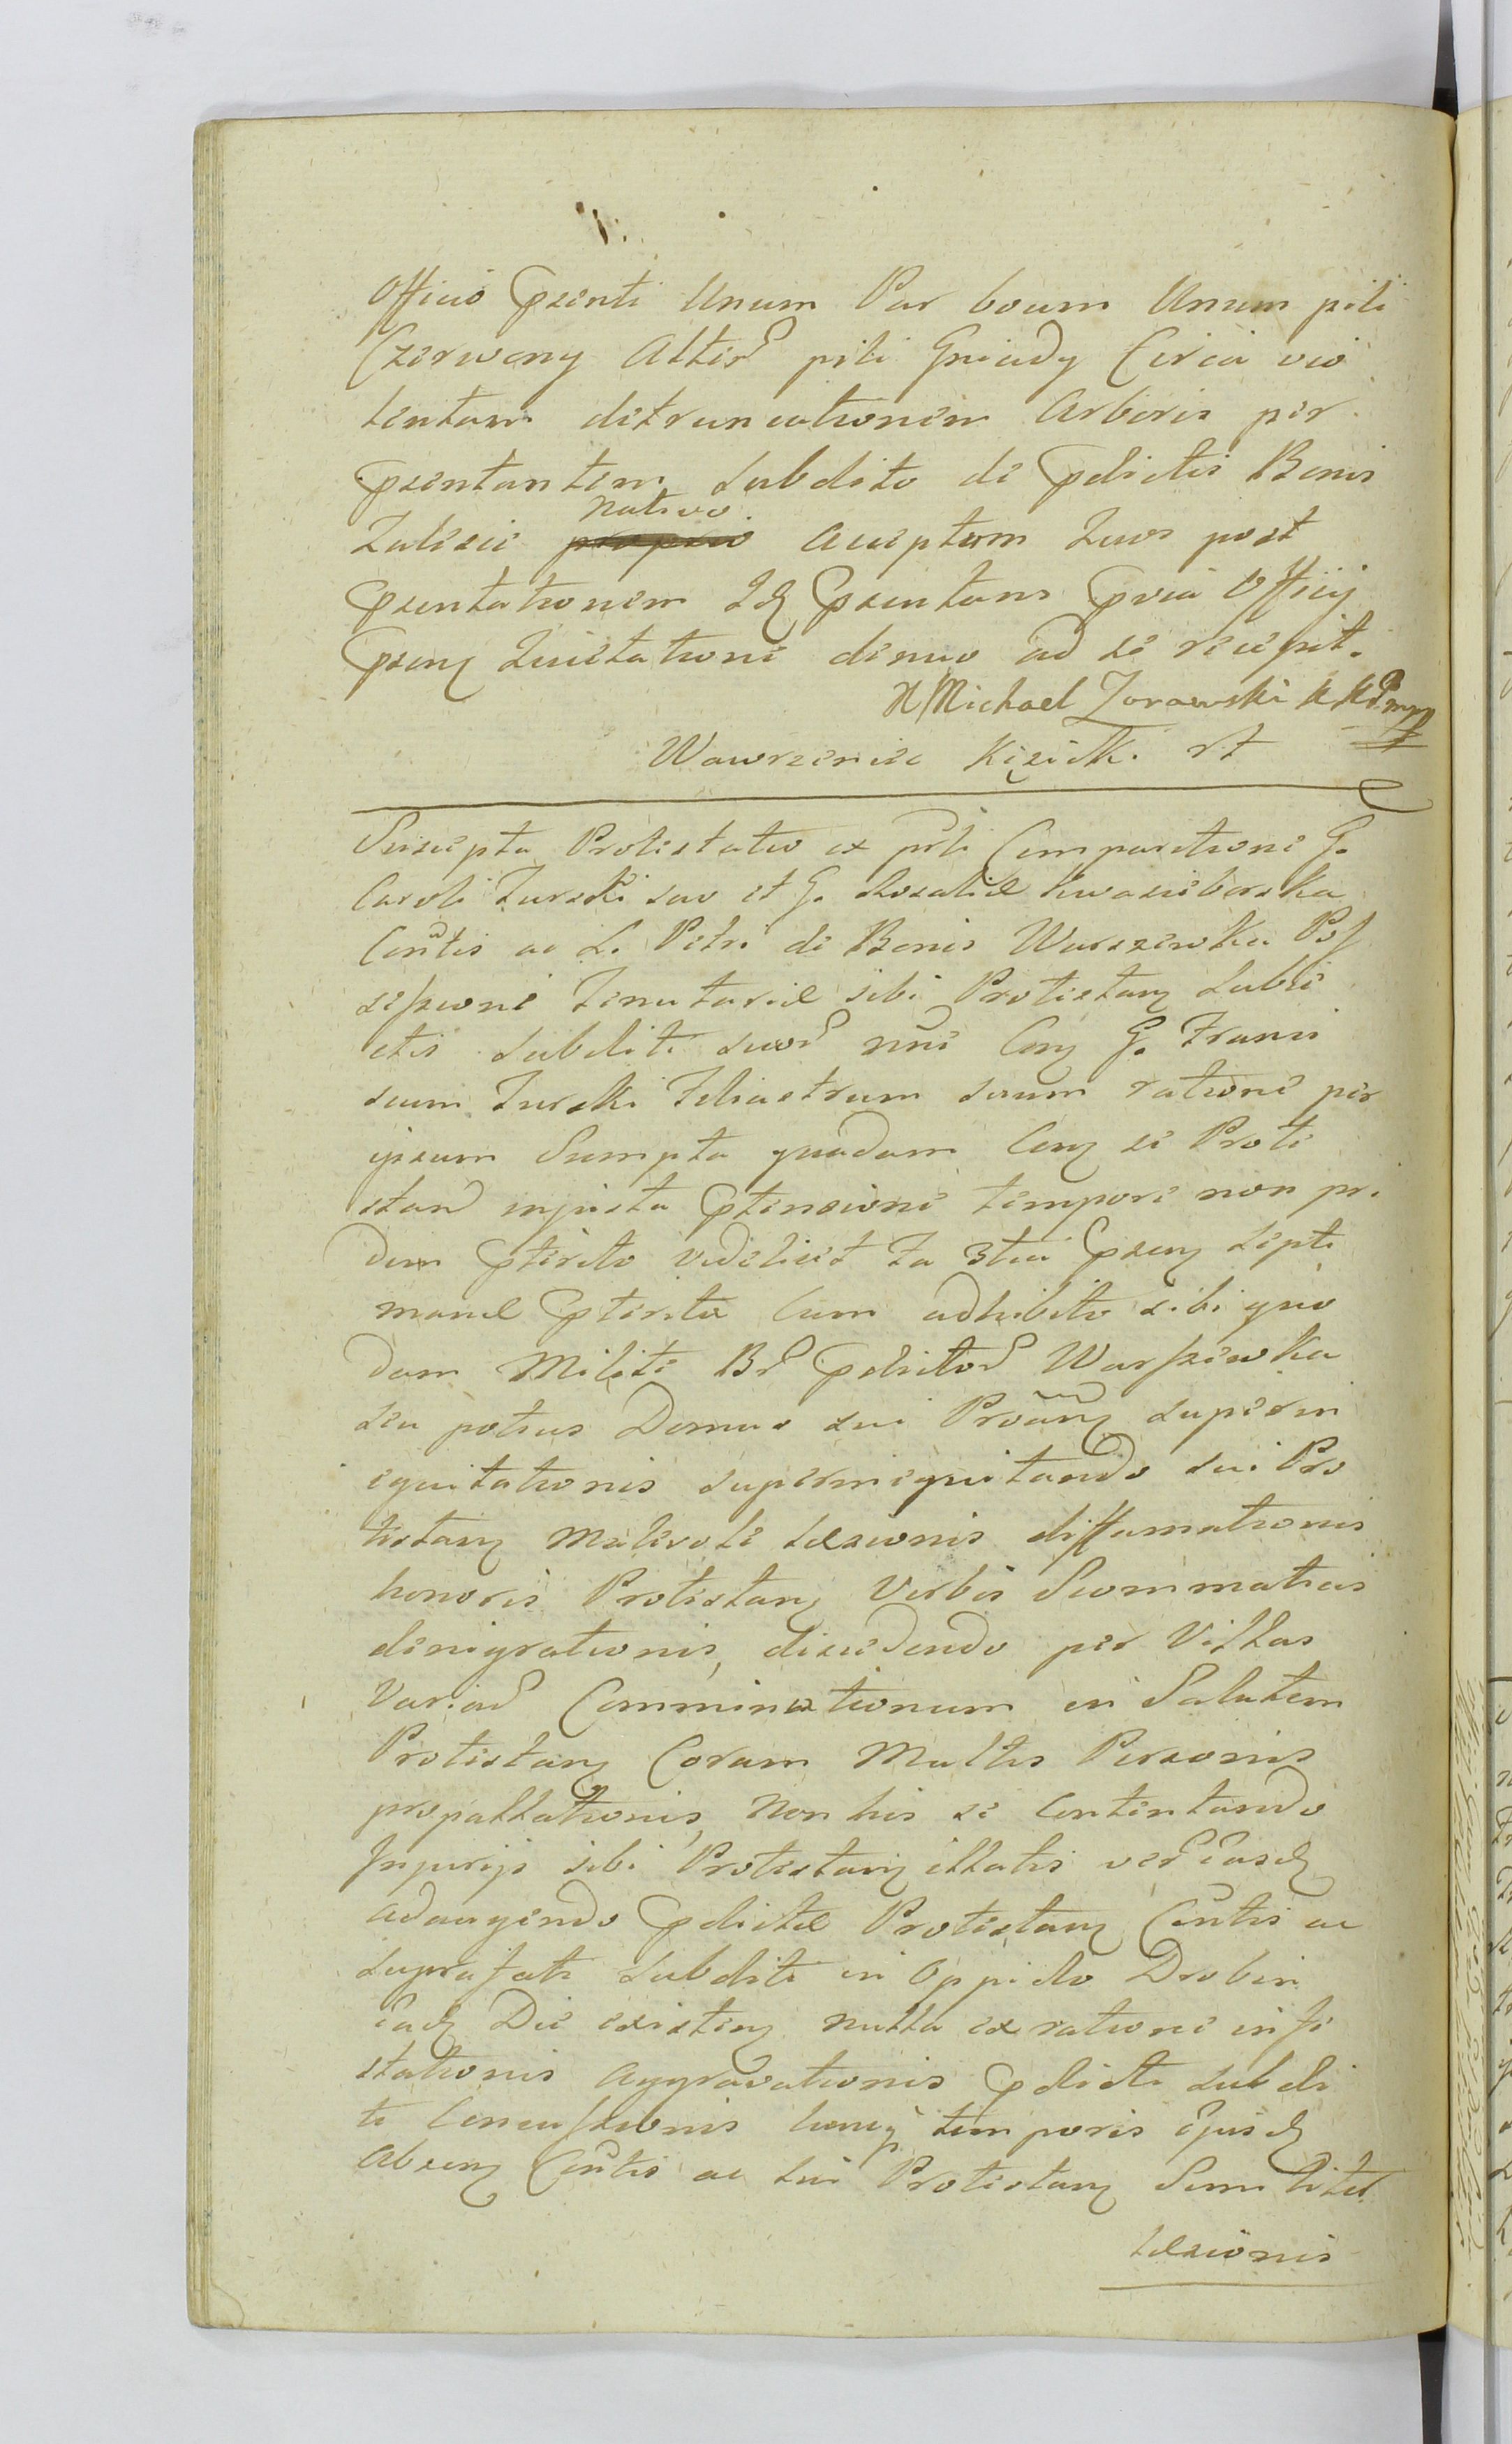 Officio Pzenti Unum Par boum Unum pili
Czerwony Alter pili Gniady Circa vio
lentam detruncationem Arboris per
Pzentantem Subdito de Pdictis Bonis
nativo
Zalesie acceptum quos post
Pzentationem Idq Pzentans Pvia Officij
Pzenq Quietatione denuo ad se recepit.
N Michael Zorawski KKP mpp
Wawrzeniec
Suscepta Protestatio ex prli Comparitione G.
Caroli Turski suo et G. Rosaliæ Kwasieborska
Contis ac L. Petri de Bonis Warszewka Pos
sessione Tenutariæ sibi Protestanq Subie
ctis subditi suor nne Conq G. Franci
scum Turski Filiastrum suum ratione per
ipsum Sumpta quadam Conq se Prote
stand injusta Ptensione tempore non pri
dem Pterito videlicet fa 3tia Pzenq septi
manæ Pterita cum adhibito sibi quo
dam Milite Br Pdictor Warszewka
seu potius Domus sui Proanq superin
equitationis superinequitando sui Pro
testanq Malevole læsionis diffamationis
honoris Protestanq Verbis Scommaticis
denigrationis, discedendo per Villas
Variar Comminationum in Salutem
Protestanq Coram Multis Personis
propallationis, Non his se Contentando
Injurijs sibi Protestanq illatis ver easdq
adaugendo Pdictæ Protestanq Contis ac
suprafati subditi in Oppido Drobin
eadq Die existenq nulla ex ratione infe
stationis Aggravationis Pdicti subdi
ti Concussionis hucq temporis ejusdq
absenq Contis ac sui Protestanq Simi liter
læsionis